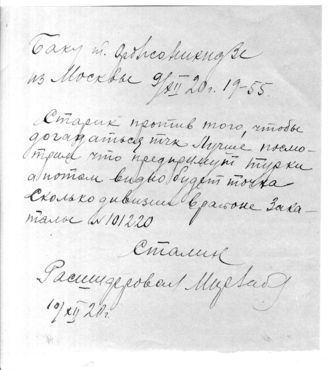 Баку т. Орджоникидзе
из Москвы 9/XII 20 г. 19-55.
Старик против того, чтобы
тчк Лучше посмо-
трим что предпримут турки
а потом видно будет точка
Сколько дивизий в районе Зака-
талы № 101220
Сталин
Расшифровал
10/XII 20 г.